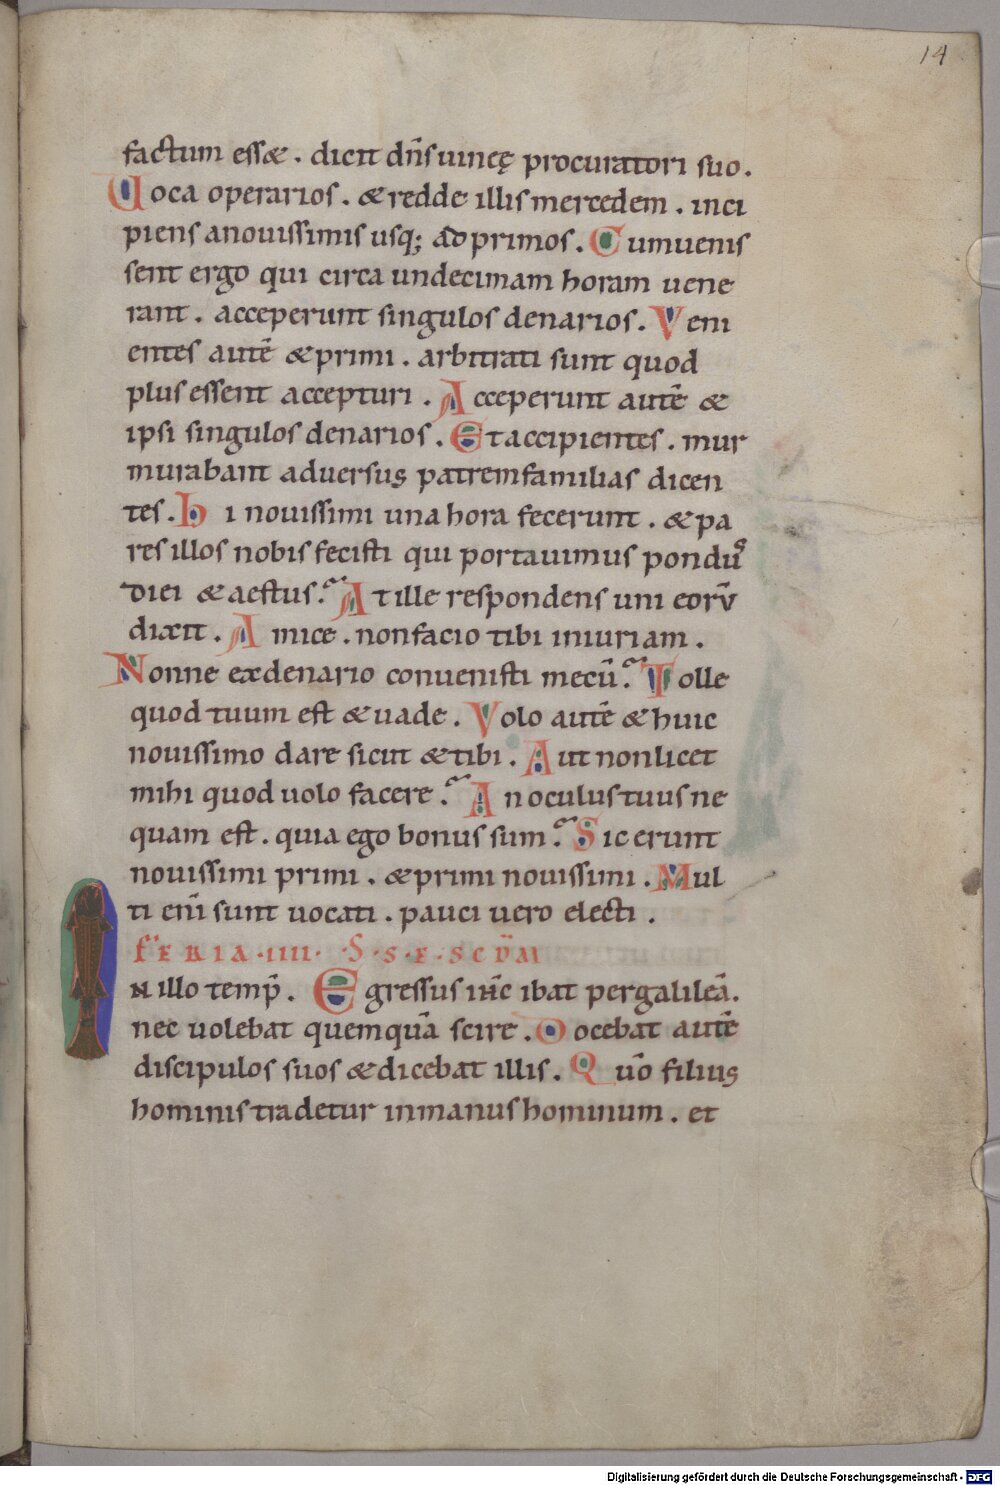 14
factum essæ . dicit dn̄s uineę procuratori suo.
Uoca operarios . & redde illis mercedem . inci
piens anouissimis usq; ad primos . Cumuenis
sent ergo qui circa undecimam horam uene
rant . acceperunt singulos denarios . Veni
entes autē & primi . arbitrati sunt quod
plus essent accepturi . Acceperunt autē &
ipsi singulos denarios . Et accipientes . mur
murabant aduersus patremfamilias dicen
tes . hi nouissimi una hora fecerunt . & pa
res illos nobis fecisti qui portauimus pondus
diei & aestus. At ille respondens uni eorū
dixit . Amice . nonfacio tibi iniuriam .
Nonne exdenario conuenisti mecū. Tolle
quod tuum est & uade . Volo autē & huic
nouissimo dare sicut & tibi . Aut nonlicet
mihi quod uolo facere . An oculus tuus ne
quam est . quia ego bonus sum . Sic erunt
nouissimi primi . & primi nouissimi . Mul
ti enī sunt uocati . pauci uero electi .
FERIA ·IIII· S·S·E·SCD̄M
N illo temp̄ . Egressus ih̄c ibat pergalileā.
nec uolebat quemquā scire . Docebat autē
discipulos suos & dicebat illis . Qūo filius
hominis tradetur inmanus hominum . et
Digitalisierung gefördert durch die Deutsche Forschungsgemeinschaft - DFG